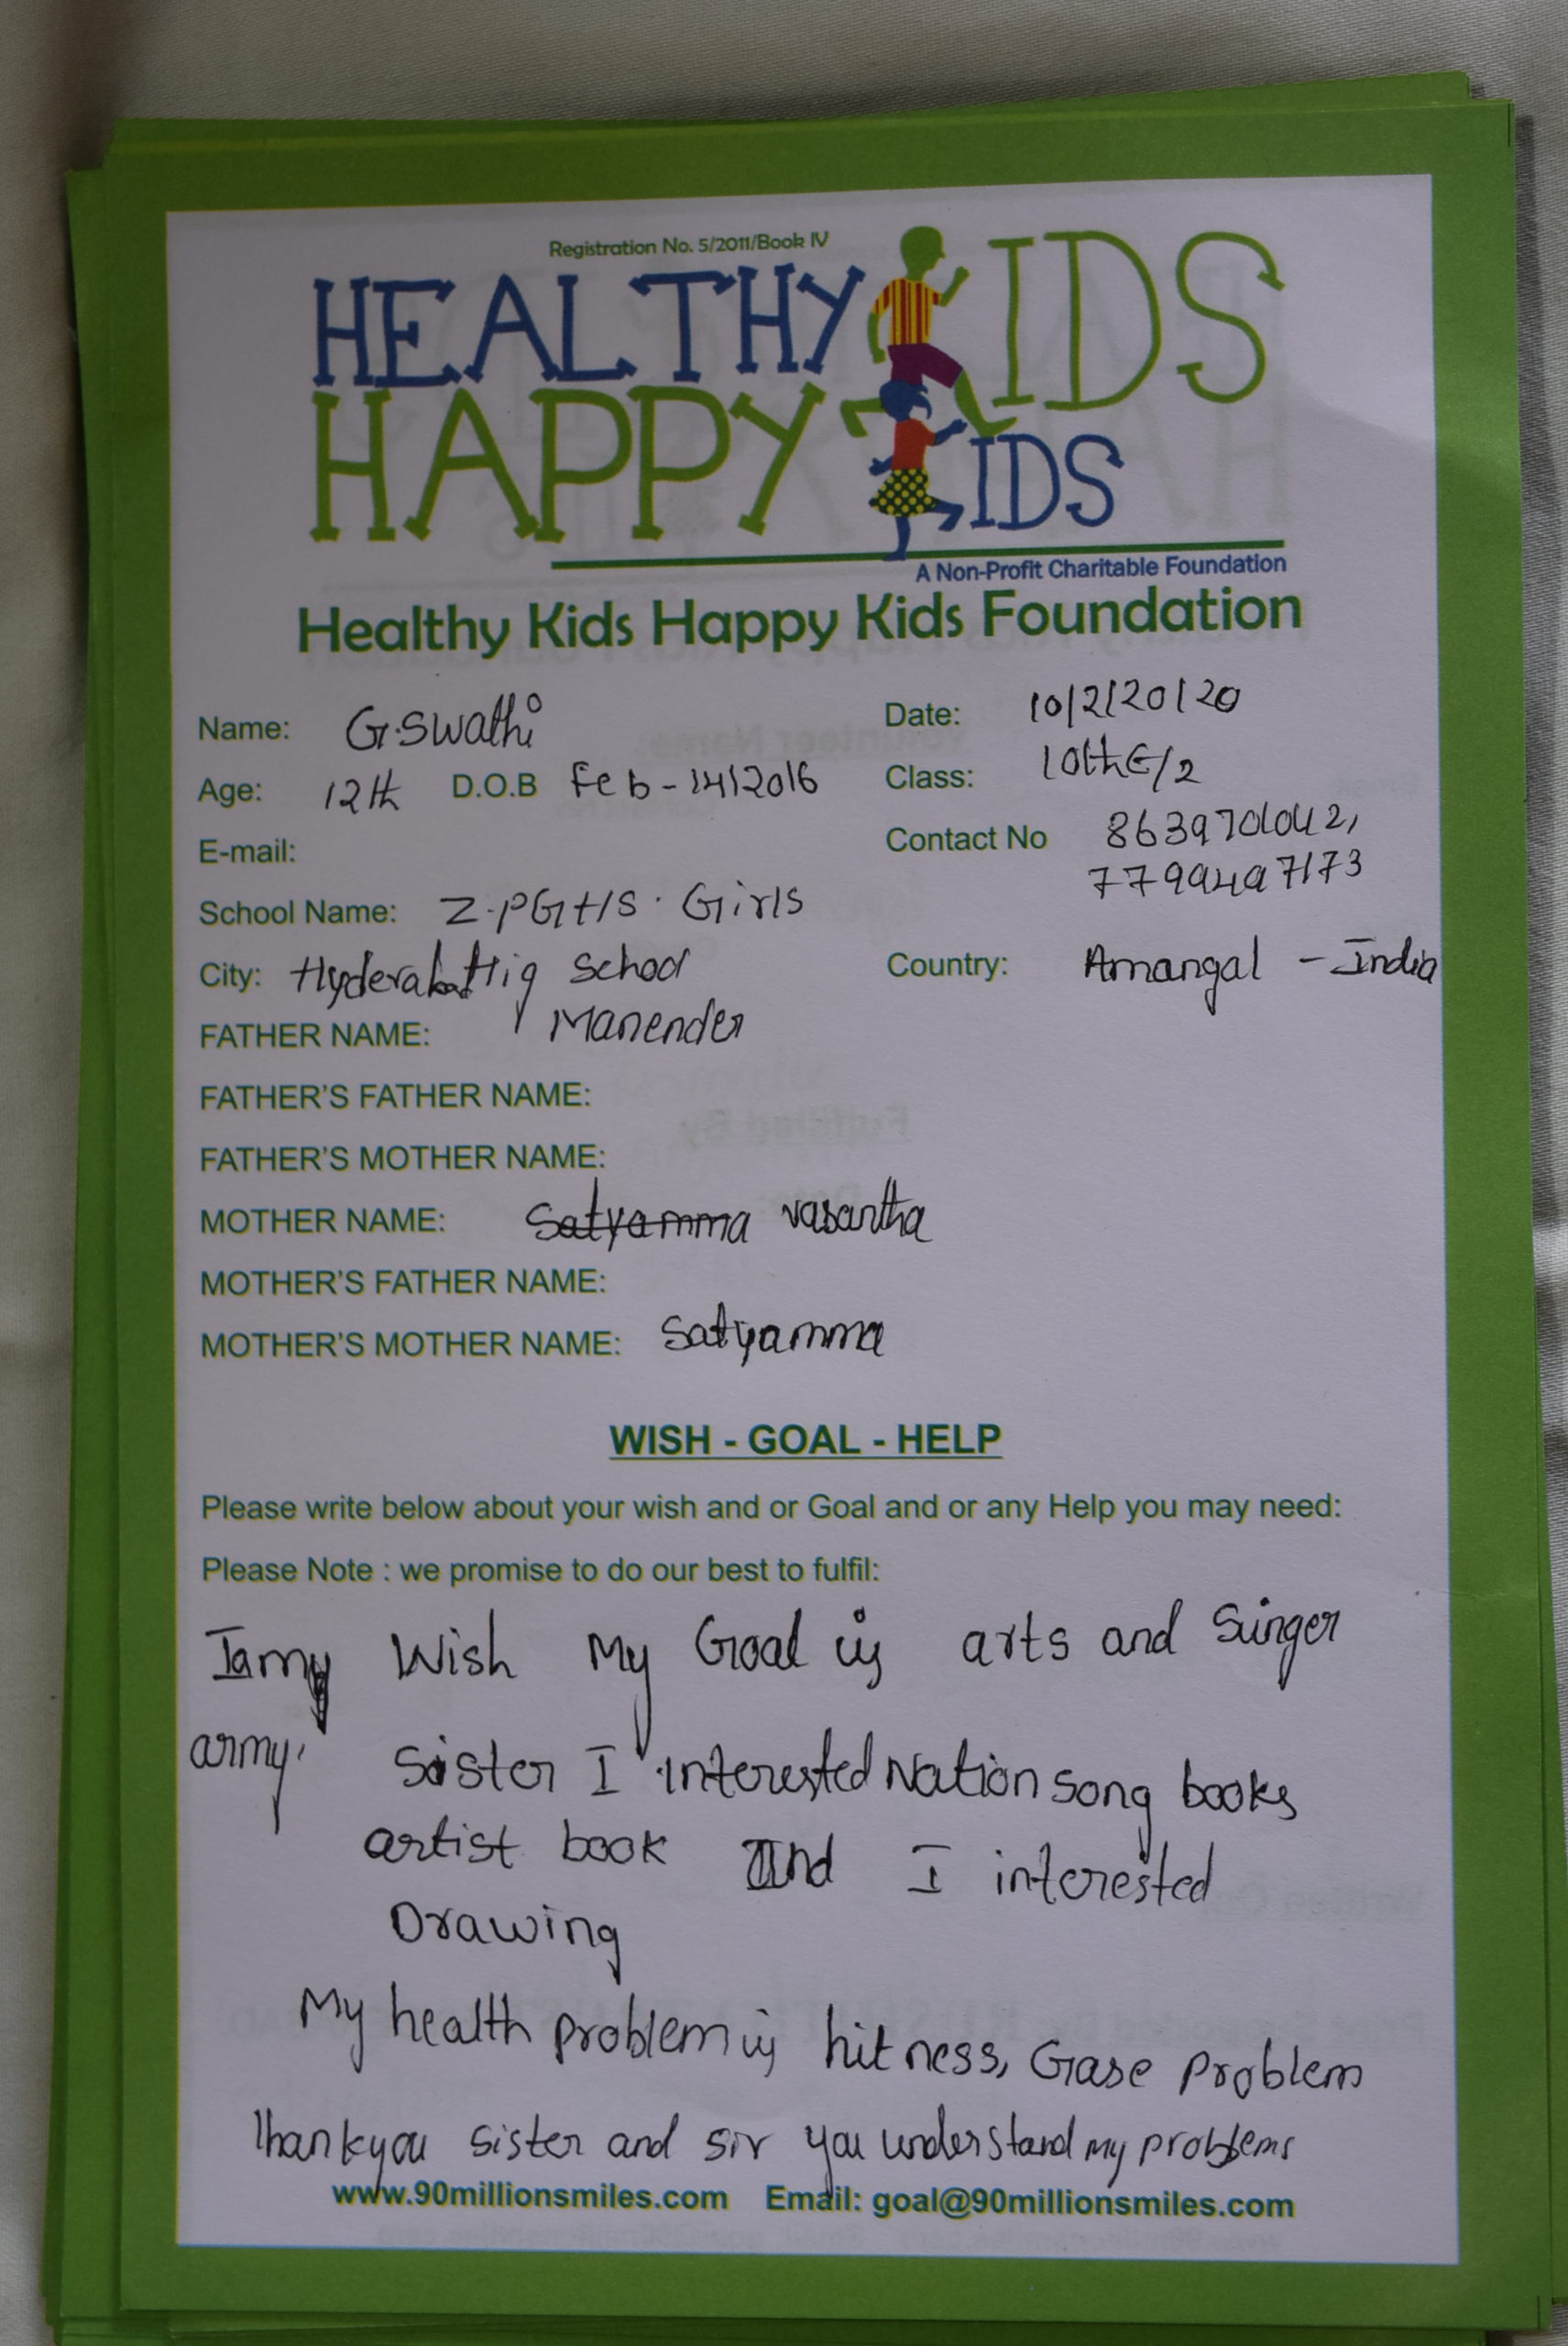 Registration No. 5/2011/Book IV
HEALTHY KIDS
HAPPY KIDS
A Non-Profit Charitable Foundation
Healthy Kids Happy Kids Foundation
Name: G.Swathi Date: 10/2/20120
Age: 12th D.O.B Feb-14/2016 Class: 10th E/2
E-mail: Contact No 8639701042,
7799497173
School Name: Z.PGHS. Girls
City: Hyderabat Hig School Country: Amangal - India
FATHER NAME: Manender
FATHER'S FATHER NAME:
FATHER'S MOTHER NAME:
MOTHER NAME: Satyamma vasantha
MOTHER'S FATHER NAME:
MOTHER'S MOTHER NAME: Satyamma
WISH - GOAL - HELP
Please write below about your wish and or Goal and or any Help you may need:
Please Note : we promise to do our best to fulfil:
Iamy Wish My Goal is arts and Singer
army. Sister I interested Nation song books
artist book And I interested
Drawing
My health problem is hitness, Gase problem
Thankyou sister and sir you understand my problems
www.90millionsmiles.com Email: goal@90millionsmiles.com